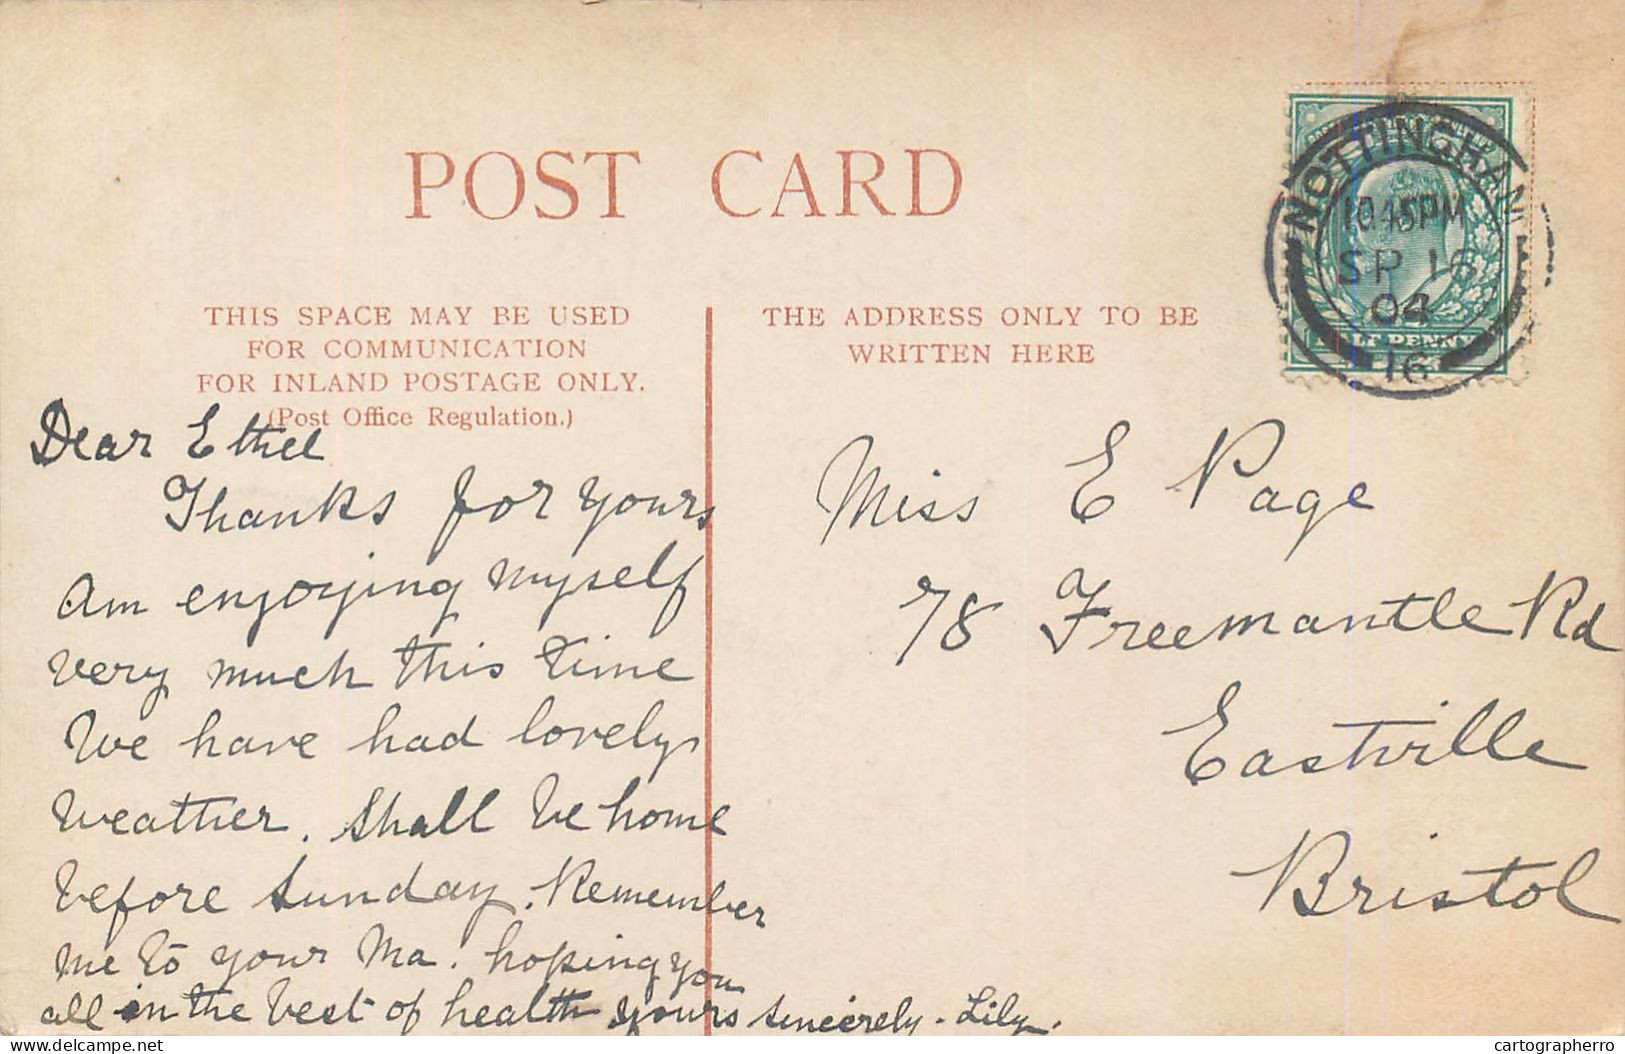 POST CARD
THIS SPACE MAY BE USED
FOR COMMUNICATION
FOR INLAND POSTAGE ONLY.
(Post Office Regulation.)
THE ADDRESS ONLY TO BE
WRITTEN HERE
NOTTINGHAM
10.45PM
SP 16
04
16
HALF PENNY
Dear Ethel
Thanks for yours
Am enjoying myself
very much this time
We have had lovely
weather. Shall be home
before Sunday. Remember
me to your Ma. hoping you
all in the best of health yours sincerely - Lily.
Miss E Page
78 Freemantle Rd
Eastville
Bristol
delcampe.net
cartographerro